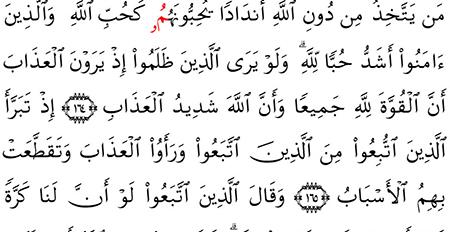 مَن يَتَّخِذُ مِن دُونِ ٱللَّهِ أَندَادًا يُحِبُّونَهُمُۥ كَحُبِّ ٱللَّهِ وَٱلَّذِينَ
ءَامَنُوٓا۟ أَشَدُّ حُبًّا لِّلَّهِ ۗ وَلَوْ يَرَى ٱلَّذِينَ ظَلَمُوٓا۟ إِذْ يَرَوْنَ ٱلْعَذَابَ
أَنَّ ٱلْقُوَّةَ لِلَّهِ جَمِيعًا وَأَنَّ ٱللَّهَ شَدِيدُ ٱلْعَذَابِ ﴿١٦٤﴾ إِذْ تَبَرَّأَ
ٱلَّذِينَ ٱتُّبِعُوا۟ مِنَ ٱلَّذِينَ ٱتَّبَعُوا۟ وَرَأَوُا۟ ٱلْعَذَابَ وَتَقَطَّعَتْ
بِهِمُ ٱلْأَسْبَابُ ﴿١٦٥﴾ وَقَالَ ٱلَّذِينَ ٱتَّبَعُوا۟ لَوْ أَنَّ لَنَا كَرَّةً